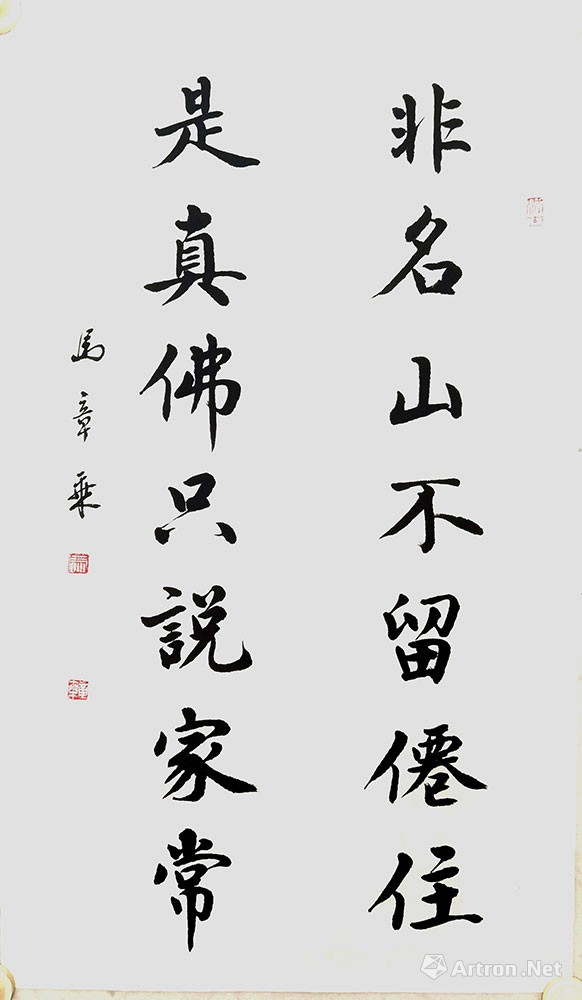 非名山不留僊住
是真佛只說家常
馬章乘
Artron.Net